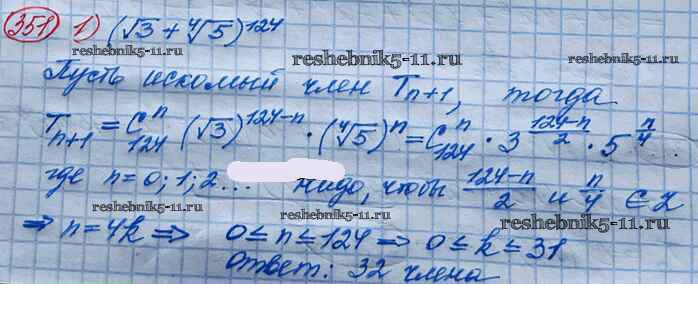 351 1) (√3 + ⁴√5)^124
reshebnik5-11.ru reshebnik5-11.ru
Пусть искомый член T_{n+1}, тогда
T_{n+1} = C_{124}^{n} (√3)^{124-n} · (⁴√5)^{n} = C_{124}^{n} · 3^{(124-n)/2} · 5^{n/4}
где n = 0; 1; 2... Надо, чтобы (124-n)/2 и n/4 ∈ Z
reshebnik5-11.ru reshebnik5-11.ru
⇒ n = 4k ⇒ 0 ≤ n ≤ 124 ⇒ 0 ≤ k ≤ 31
Ответ: 32 члена